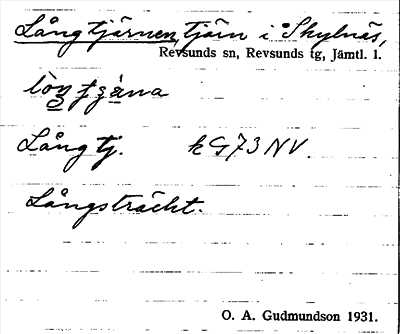 Långtjärnen, tjärn i Skylnäs,
Revsunds sn, Revsunds tg, Jämtl. l.
Långtj. kG73NV.
Långsträckt.
O. A. Gudmundson 1931.